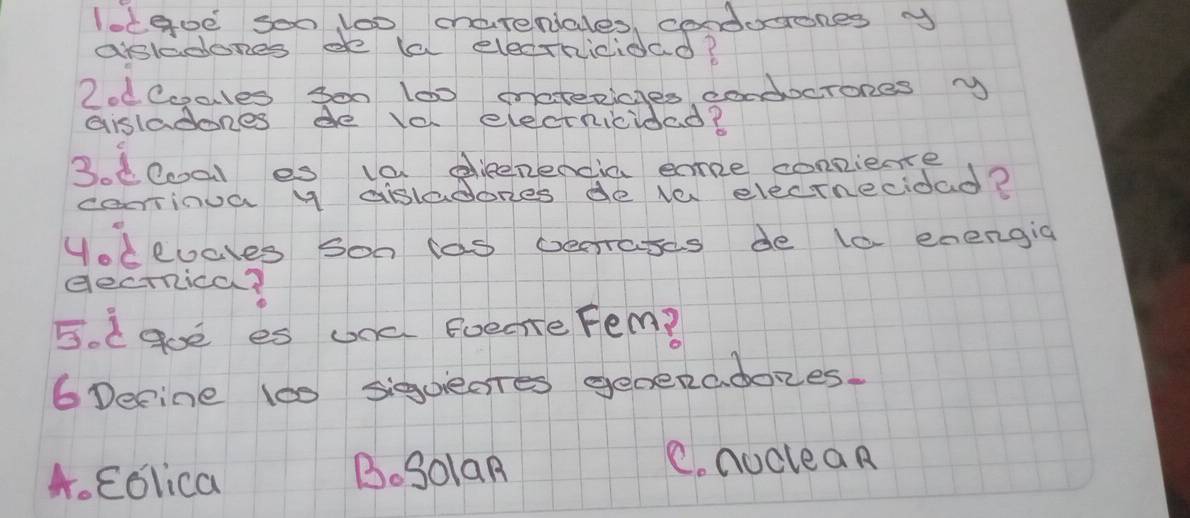 1. ¿qué son los materiales conductores y
aisladores de la electricidad?
2. ¿Cuales son los materiales conductores y
aisladores de la electricidad?
3. ¿Cual es la diferencia entre corriente
continua y aisladores de la electrecidad?
4. ¿cuales son las ventajas de la energia
electrica?
5. ¿qué es una fuente Fem?
6 Define los siguientes generadores.
A. Eólica B. Solar C. nuclear